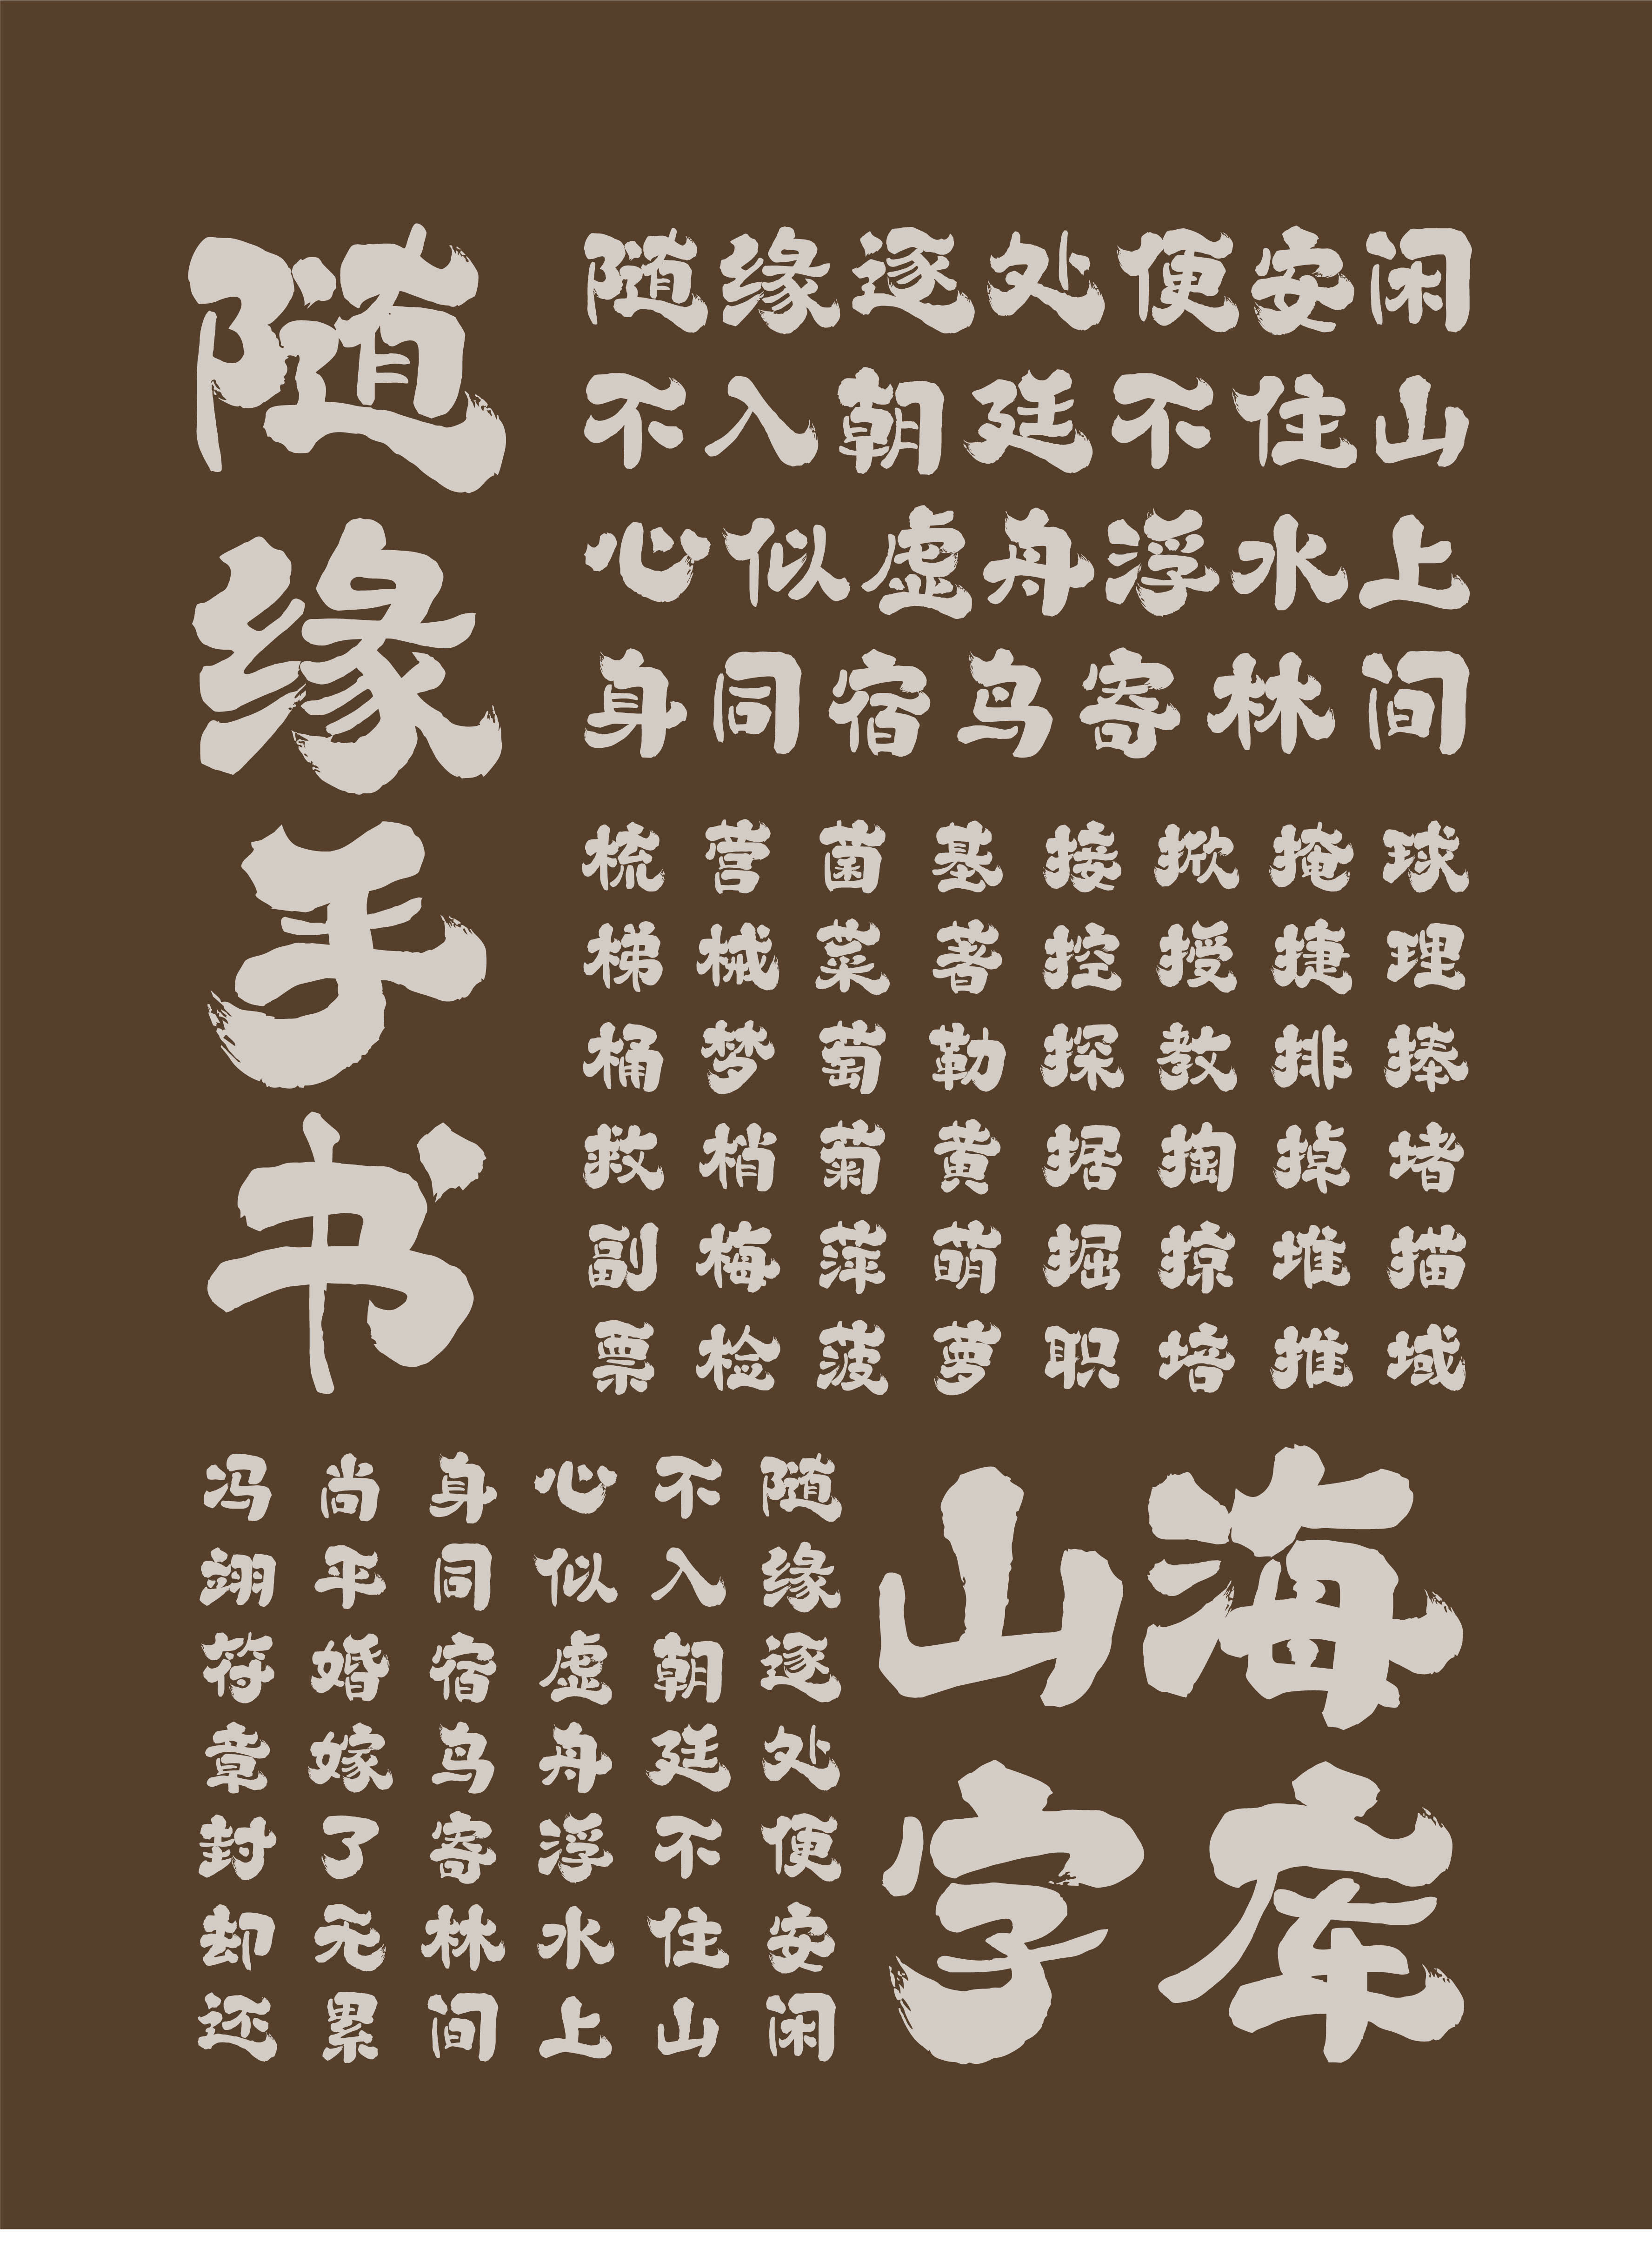 随缘手书
随缘逐处便安闲
不入朝廷不住山
心似虚舟浮水上
身同宿鸟寄林间
球理捧堵描域
掩捷排掉堆推
掀授教掏掠培
接控探据掘职
基著勒黄萌萝
菌菜萄菊萍菠
营械梦梢梅检
梳梯桶救副票
山海
字库
随缘逐处便安闲
不入朝廷不住山
心似虚舟浮水上
身同宿鸟寄林间
尚平婚嫁了无累
冯翊符章封却还